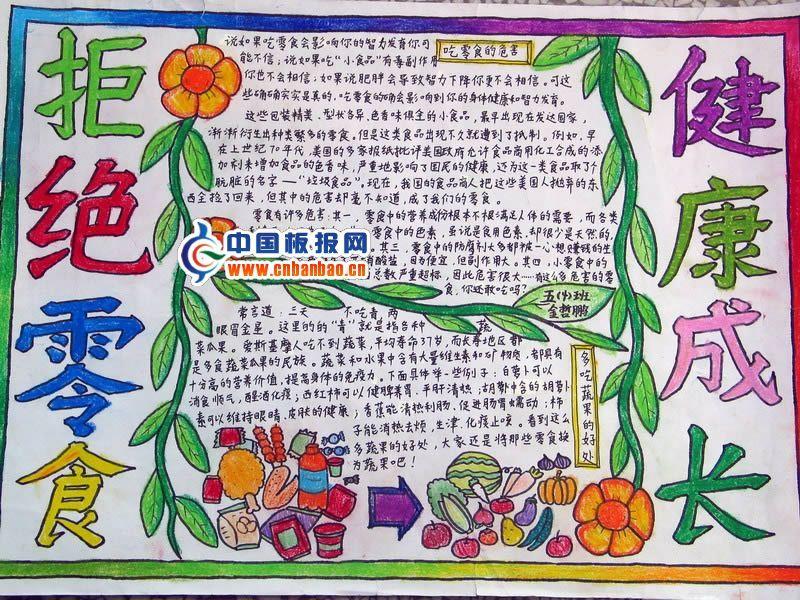 拒绝零食
健康成长
吃零食的危害
说如果吃零食会影响你的智力发育你可
能不信；说如果吃“小食品”有毒副作用
你也不会相信；如果说肥胖会导致智力下降你更不会相信。可这
些确确实实是真的，吃零食的确会影响到你的身体健康和智力发育。
这些包装精美、型状各异、色香味俱全的小食品，最早出现在发达国家，
渐渐衍生出种类繁多的零食。但是这类食品出现不久就遭到了抵制。例如，早
在上世纪70年代，美国的多家报纸批评美国政府允许食品商用化工合成的添
加剂来增加食品的色香味，严重地影响了国民的健康，还为这一类食品取了个
肮脏的名字——“垃圾食品”。现在，我国的食品商人把这些美国人抛弃的东
西全捡了回来，但其中的危害却毫不知道，成了我们的零食。
零食有许多危害：其一，零食中的营养成份根本不根满足人体的需要，而各类
零食中的色素，虽说是食用色素，却很少是天然的，
其三，零食中的防腐剂大多都被一小想赚钱的生
硝酸盐，因为便宜，但副作用大。其四，小零食中的
总数严重超标，因此危害很大……有这么多危害的零
食，你还敢吃吗？
中国板报网
www.cnbanbao.cn
五(4)班
金哲鹏
常言道：三天 不吃青，两
眼冒金星。这里的的“青”就是指各种 蔬
菜瓜果。爱斯基摩人吃不到蔬菜，平均寿命37岁，而长寿地区都
是多食蔬菜瓜果的民族。蔬菜和水果中含有大量维生素和矿物质，都具有
十分高的营养价值，提高身体的免疫力。下面具体举一些例子：白萝卜可以
消食顺气，醒酒化痰；西红柿可以健脾养胃，平肝清热；胡萝卜中含的胡萝卜
素可以维持眼睛、皮肤的健康；香蕉能清热利肠，促进肠胃蠕动；柿
子能消热去烦，生津，化痰止咳。看到这么
多蔬果的好处，大家还是将那些零食换
为蔬果吧！
多吃蔬果的好处